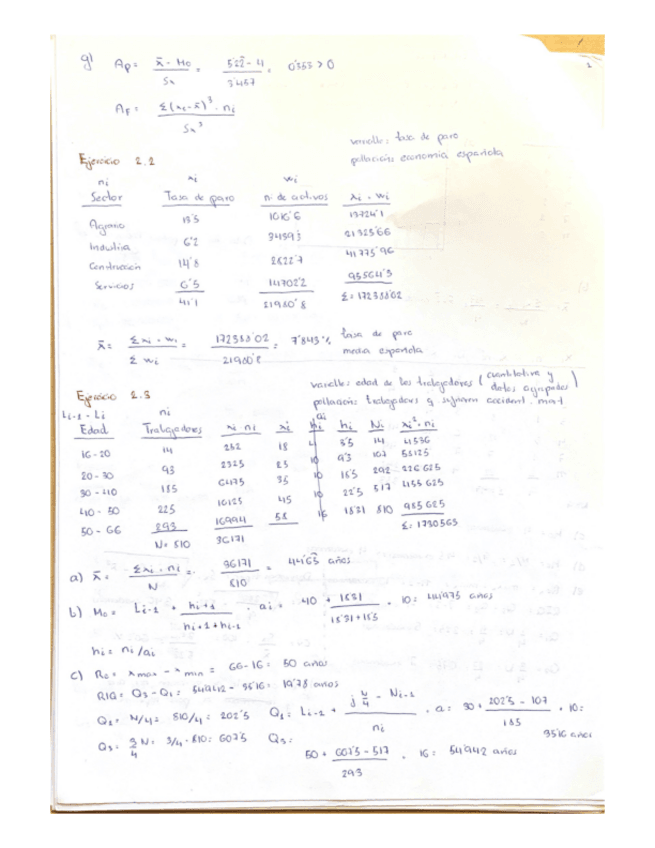 g) Ap = x̄ - Mo / Sx = 5'22 - 4 / 3'457 = 0'353 > 0
AF = Σ(xi - x̄)³ · ni / Sx³
variable: tasa de paro
población: economía española
Ejercicio 2.2
ni xi wi
Sector Tasa de paro n. de activos xi · wi
Agrario 13'5 1016'6 13724'1
Industria 6'2 3439'3 21325'66
Construcción 14'8 2822'7 41775'96
Servicios 6'5 14702'2 95564'3
41'1 21980'8 Σ = 172388'02
x̄ = Σ xi · wi / Σ wi = 172388'02 / 21980'8 = 7'843% tasa de paro media española
Ejercicio 2.3
variable: edad de los trabajadores (cuantitativa y datos agrupados)
población: trabajadores q sufrieron accident. mort
Li-1 - Li ni ai
Edad Trabajadores xi ni xi hi Ni xi² · ni
16 - 20 14 252 18 4 3'5 14 4536
20 - 30 93 2325 25 10 9'3 107 58125
30 - 40 185 6475 35 10 18'5 292 226625
40 - 50 225 10125 45 10 22'5 517 455625
50 - 66 293 16994 58 16 18'31 810 985625
N = 810 36171 Σ = 1730565
a) x̄ = Σxi · ni / N = 36171 / 810 = 44'65 años
b) Mo = Li-1 + hi+1 / hi+1 + hi-1 · ai = 40 + 18'31 / 18'31 + 18'5 · 10 = 44'975 años
hi = ni/ai
c) Re = x max - x min = 66 - 16 = 50 años
RIQ = Q3 - Q1 = 54'942 - 35'16 = 19'78 años
Q1 = N/4 = 810/4 = 202'5 Q1 = Li-1 + j N/4 - Ni-1 / ni · a = 30 + 202'5 - 107 / 185 · 10 = 35'16 años
Q3 = 3/4 N = 3/4 · 810 = 607'5 Q3 = 50 + 607'5 - 517 / 293 · 16 = 54'942 años